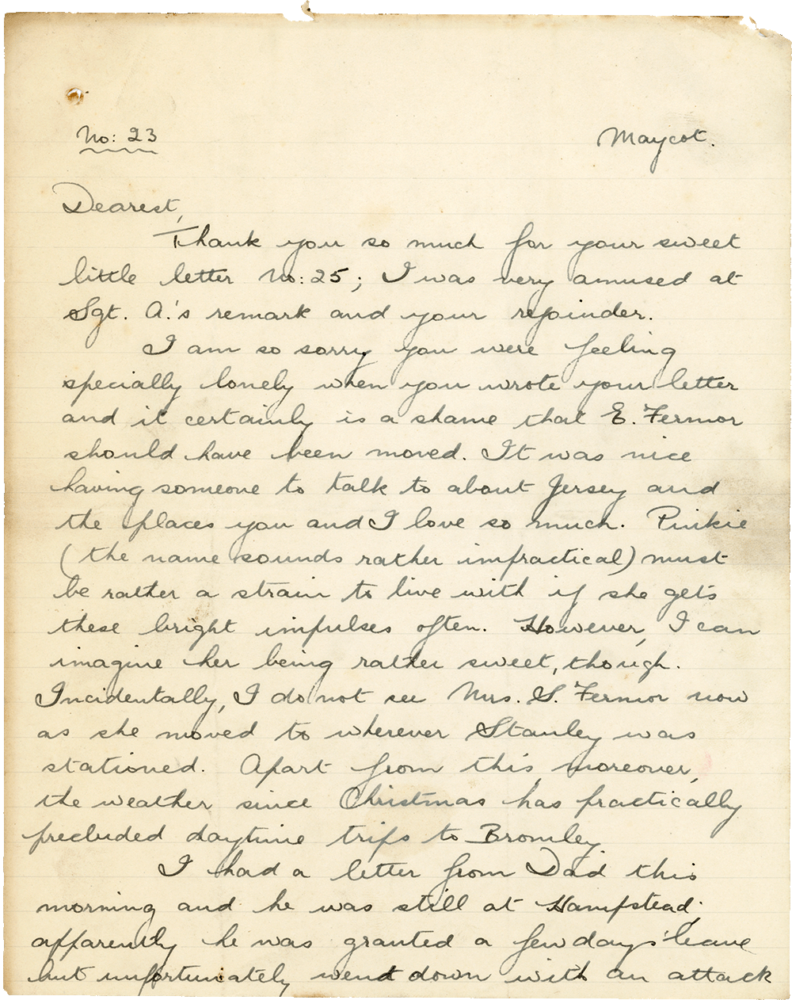 No: 23
Maycot.
Dearest,
Thank you so much for your sweet
little letter No: 25; I was very amused at
Sgt. A.'s remark and your rejoinder.
I am so sorry you were feeling
specially lonely when you wrote your letter
and it certainly is a shame that E. Fermor
should have been moved. It was nice
having someone to talk to about Jersey and
the places you and I love so much. Pinkie
(the name sounds rather impractical) must
be rather a strain to live with if she gets
these bright impulses often. However, I can
imagine her being rather sweet, though.
Incidentally, I do not see Mrs. S. Fermor now
as she moved to wherever Stanley was
stationed. Apart from this, moreover,
the weather since Christmas has practically
precluded daytime trips to Bromley.
I had a letter from Dad this
morning and he was still at Hampstead;
apparently he was granted a few days' leave
but unfortunately went down with an attack